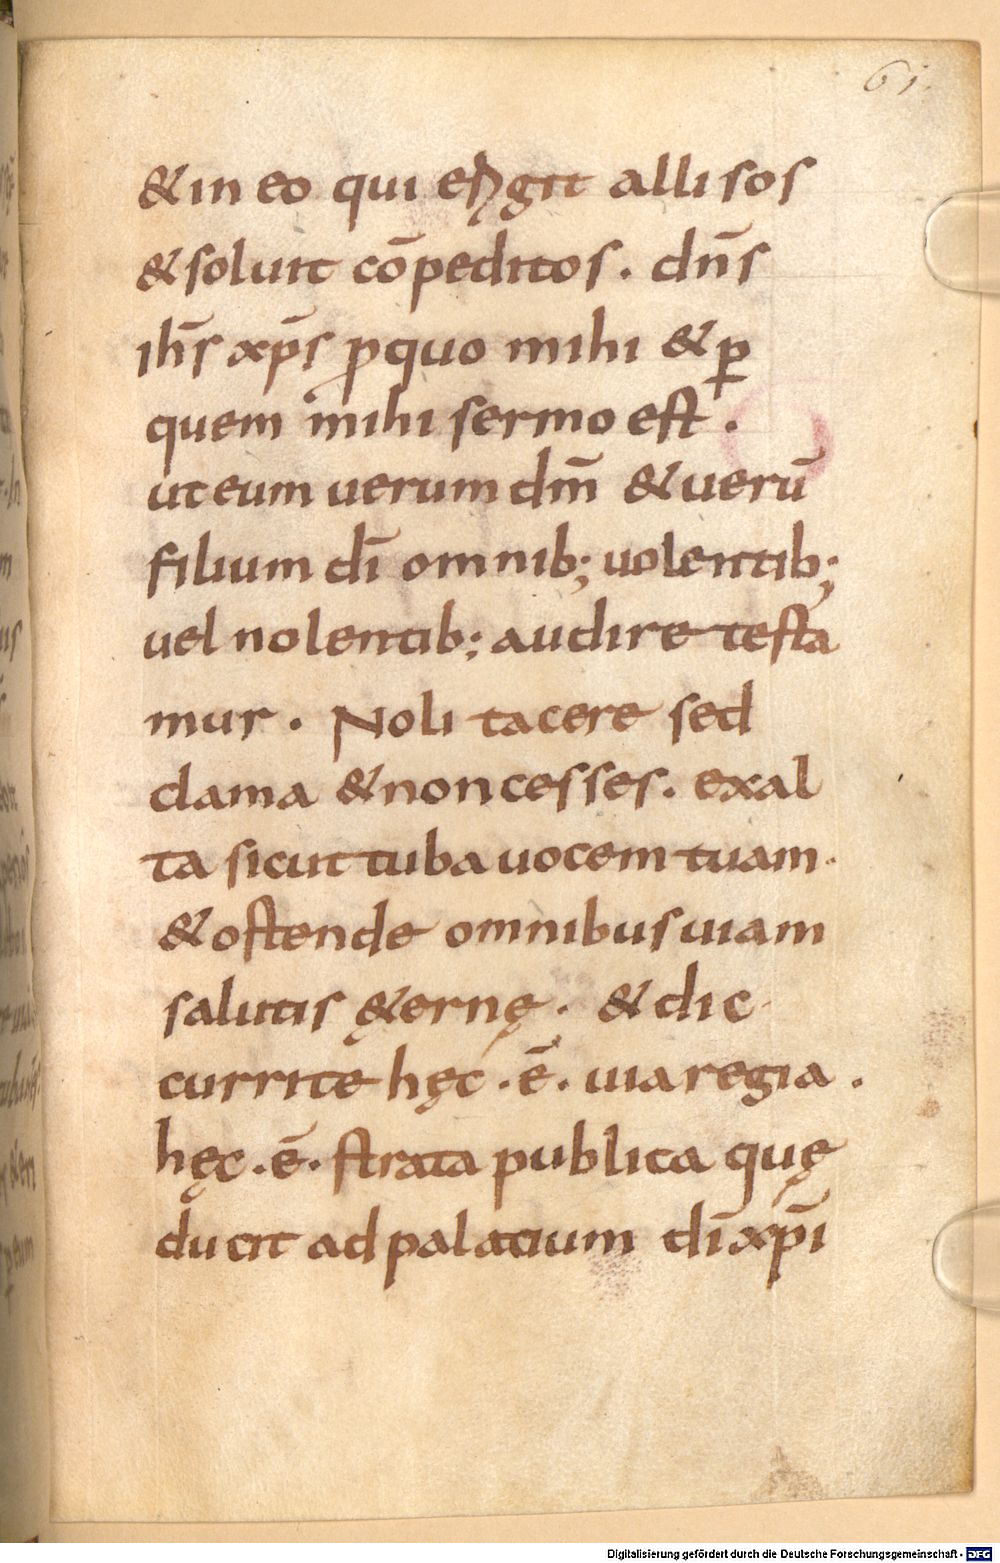 61.
& in eo qui eꝝgit allisos
& soluit cōpeditos. dn̄s
ih̄s xp̄s ꝓ quo mihi & ꝑ
quem mihi sermo est.
ut eum uerum dm̄ & uerū
filium dī omnib; uolentib;
uel nolentib; audire testa
mur. Noli tacere sed
clama & non cesses. exal
ta sicut tuba uocem tuam.
& ostende omnibus uiam
salutis ę&ernę. & dic
currite hęc .ē. uia regia.
hęc .ē. strata publica quę
ducit ad palatium dī xp̄i
Digitalisierung gefördert durch die Deutsche Forschungsgemeinschaft - DFG